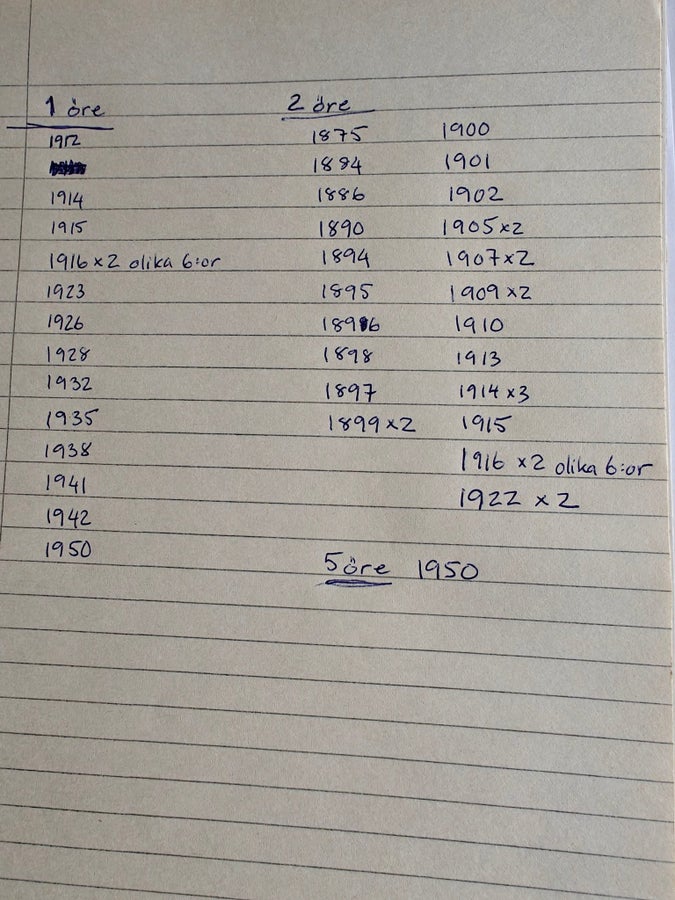 1 öre
1912
1914
1915
1916 x 2 olika 6:or
1923
1926
1928
1932
1935
1938
1941
1942
1950
2 öre
1875
1884
1886
1890
1894
1895
1896
1898
1897
1899 x 2
1900
1901
1902
1905 x 2
1907 x 2
1909 x 2
1910
1913
1914 x 3
1915
1916 x 2 olika 6:or
1922 x 2
5 öre 1950